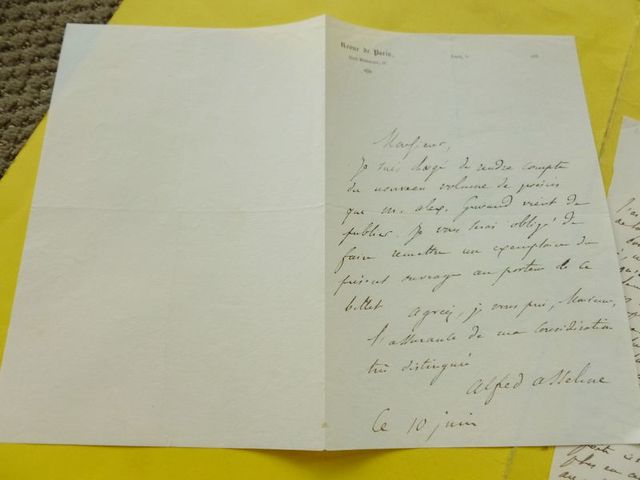 Revue de Paris.
Paris, le
Monsieur,
Je suis chargé de rendre compte
du nouveau volume de poésies
que M. Alex. vient de
publier. Je vous serai obligé de
faire remettre un exemplaire du
présent ouvrage au porteur de ce
billet. Agréez, je vous prie, Monsieur,
l'assurance de ma considération
très distinguée
Alfred Asseline
Ce 10 juin